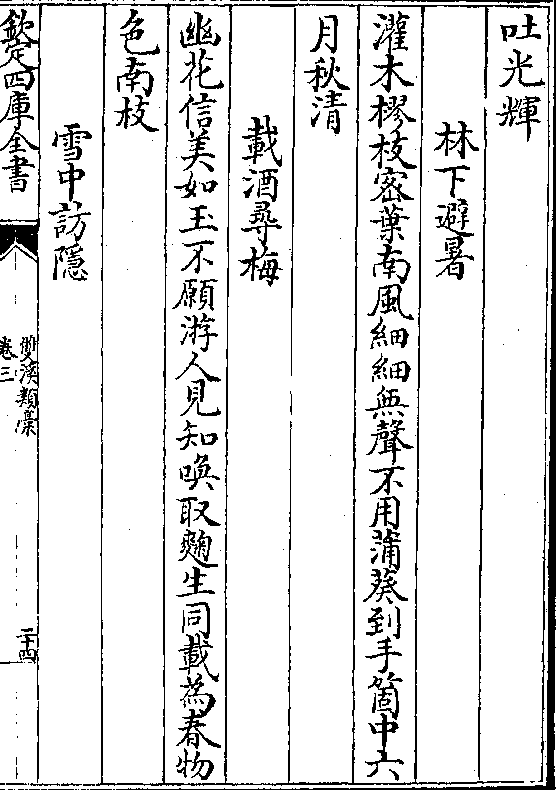 吐光輝
林下避暑
灌木樛枝密葉南風細細無聲不用蒲葵到手箇中六
月秋清
載酒尋梅
幽花信美如玉不願游人見知喚取麴生同載為春物
色南枝
雪中訪隱
欽定四庫全書
雙溪類藁
卷三
二十四